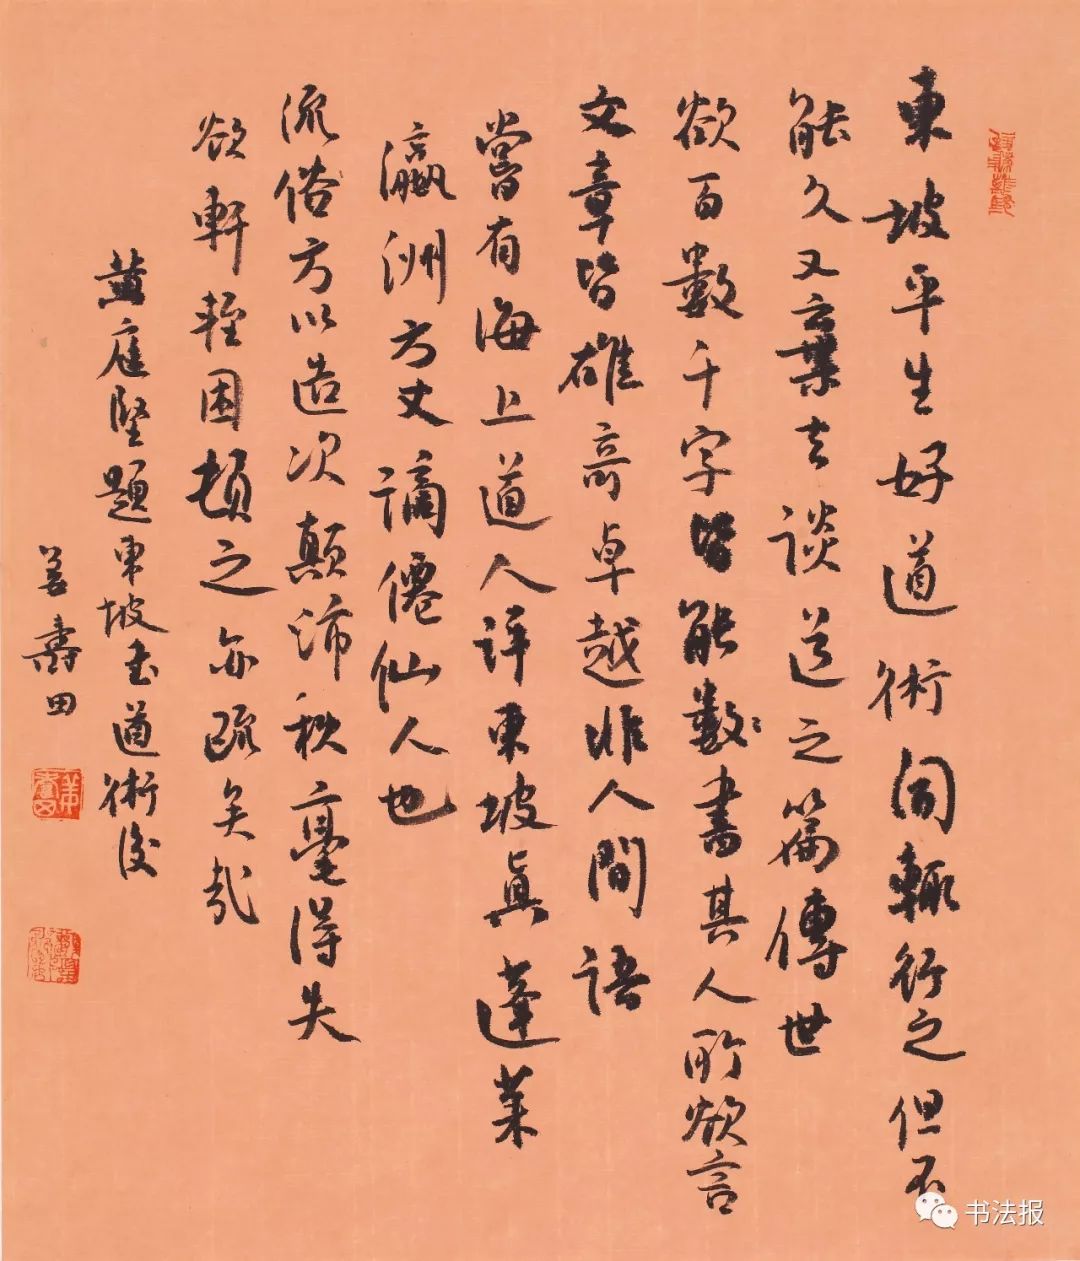 東坡平生好道術聞輒行之但不
能久又棄去談道之篇傳世
欲百數千字皆能數書其人所欲言
文章皆雄奇卓越非人間語
嘗有海上道人評東坡真蓬萊
瀛洲方丈謫僊仙人也
流俗方以造次顛沛秋毫得失
欲軒輊困頓之亦疏矣哉
黄庭堅題東坡書道術後
姜壽田
书法报